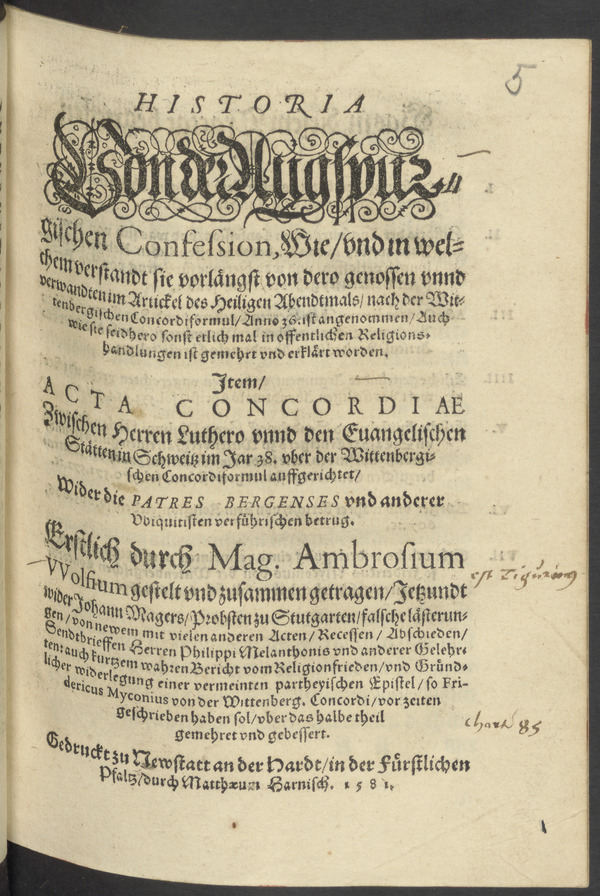 5
HISTORIA
Von der Augspur-
gischen Confession, Wie/ vnd in wel-
chem verstandt sie vorlängst von dero genossen vnnd
verwandten im Artickel des Heiligen Abendtmals/ nach der Wit-
tenbergischen Concordiformul/ Anno 36. ist angenommen/ Auch
wie sie seidhero sonst etlich mal in offentlichen Religions-
handlungen ist gemehrt vnd erklärt worden.
Item/
ACTA CONCORDIAE
Zwischen Herren Luthero vnnd den Euangelischen
Stätten in Schweitz im Jar 38. vber der Wittenbergi-
schen Concordiformul auffgerichtet/
Wider die PATRES BERGENSES vnd anderer
Vbiquitisten verführischen betrug.
Erstlich durch Mag. Ambrosium
VVolfium gestelt vnd zusammen getragen/ Jetzundt
wider Johann Magers/ Probsten zu Stutgarten/ falsche lästerun-
gen/ von newem mit vielen anderen Acten/ Recessen/ Abschieden/
Sendtbrieffen Herren Philippi Melanthonis vnd anderer Gelehr-
ten: auch kurtzem wahren Bericht vom Religionfrieden/ vnd Gründ-
licher widerlegung einer vermeinten partheyischen Epistel/ so Fri-
dericus Myconius von der Wittenberg. Concordi/ vor zeiten
geschrieben haben sol/ vber das halbe theil
gemehret vnd gebessert.
est
chart 85
Gedruckt zu Newstatt an der Hardt/ in der Fürstlichen
Pfaltz/ durch Matthæum Harnisch. 1581.
1